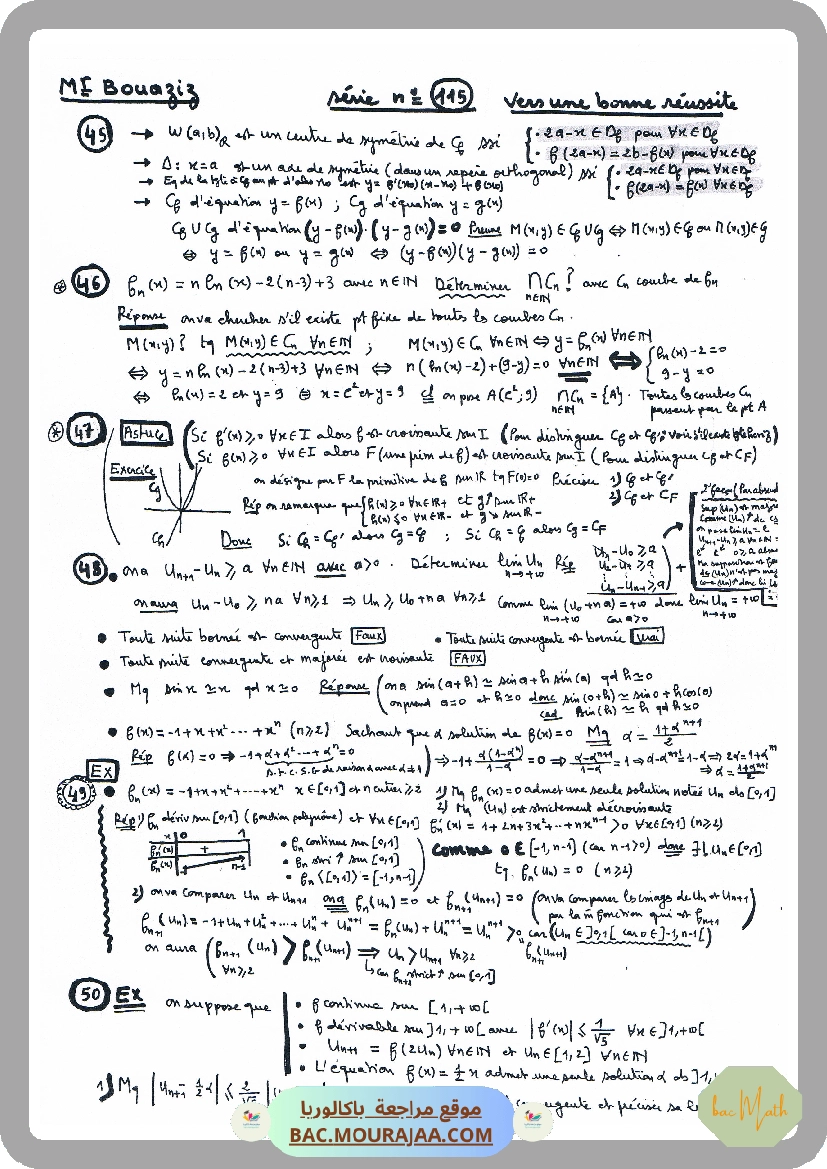 Mr Bouaziz
série n° 115 Vers une bonne réussite
45 → W(a,b)R est un centre de symétrie de Cf ssi { • 2a-x ∈ Df pour ∀x ∈ Df
• f(2a-x) = 2b-f(x) pour ∀x ∈ Df
→ Δ: x=a est un axe de symétrie (dans un repère orthogonal) ssi { • 2a-x ∈ Df pour ∀x ∈ Df
• f(2a-x) = f(x) pour ∀x ∈ Df
→ Eq de la tgte à Cf au pt d'abs x0 est y = f'(x0)(x-x0)+f(x0)
→ Cf d'équation y = f(x) ; Cg d'équation y = g(x)
Cf ∪ Cg d'équation (y-f(x))·(y-g(x)) = 0 Preuve M(x,y) ∈ Cf ∪ Cg ⇔ M(x,y) ∈ Cf ou M(x,y) ∈ Cg
⇔ y = f(x) ou y = g(x) ⇔ (y-f(x))(y-g(x)) = 0
46 fn(x) = n ln(x) - 2(n-3)+3 avec n ∈ IN Déterminer ∩Cn ? avec Cn courbe de fn
n∈IN
Réponse on va chercher s'il existe pt fixe de toutes les courbes Cn.
M(x,y)? tq M(x,y) ∈ Cn ∀n ∈ IN ; M(x,y) ∈ Cn ∀n ∈ IN ⇔ y = fn(x) ∀n ∈ IN
⇔ y = n ln(x) - 2(n-3)+3 ∀n ∈ IN ⇔ n(ln(x)-2)+(9-y)=0 ∀n ∈ IN ⇔ { ln(x)-2=0
9-y=0
⇔ ln(x)=2 et y=9 ⇔ x=e² et y=9 on pose A(e²,9) ∩Cn = {A}. Toutes les courbes Cn
n∈IN passent par le pt A
47 Astuce ( Si f'(x) ≥ 0 ∀x ∈ I alors f est croissante sur I (Pour distinguer Cf et Cf'
Si f(x) ≥ 0 ∀x ∈ I alors F (une prim de f) est croissante sur I (Pour distinguer Cf et CF)
Exercice on désigne par F la primitive de f sur IR tq F(0)=0 Préciser 1) Cf et Cf'
2) Cf et CF
Cg
Ch
Rép on remarque que { h(x) ≥ 0 ∀x ∈ IR+ et g↗ sur IR+
h(x) ≤ 0 ∀x ∈ IR- et g↘ sur IR-
Donc Si Ch = Cf' alors Cg = Cf ; Si Ch = Cf alors Cg = CF
48 • on a Un+1 - Un ≥ a ∀n ∈ IN avec a>0. Déterminer lim Un Rép U1-U0 ≥ a
n→+∞ U2-U1 ≥ a
Un-Un-1 ≥ a
+
on aura Un-U0 ≥ na ∀n≥1 ⇒ Un ≥ U0+na ∀n≥1 Comme lim (U0+na) = +∞ donc lim Un = +∞
n→+∞ car a>0 n→+∞
• Toute suite bornée est convergente Faux • Toute suite convergente est bornée Vrai
• Toute suite convergente et majorée est croissante FAUX
• Mq sin x ≃ x qd x≃0 Réponse ( on a sin(a+h) ≃ sin a + h sin'(a) qd h≃0
on prend a=0 et h≃0 donc sin(0+h) ≃ sin 0 + h cos(0)
cad sin(h) ≃ h qd h≃0
• f(x) = -1+x+x²+...+xⁿ (n≥2) Sachant que α solution de f(x)=0 Mq α = (1+αⁿ⁺¹)/2
Rép f(α)=0 ⇒ -1+α+α²+...+αⁿ=0 ⇒ -1+α(1-αⁿ)/(1-α) = 0 ⇒ (α-αⁿ⁺¹)/(1-α) = 1 ⇒ α-αⁿ⁺¹=1-α ⇒ 2α=1+αⁿ⁺¹
⇒ α = (1+αⁿ⁺¹)/2
EX
49 • fn(x) = -1+x+x²+...+xⁿ x ∈ [0,1] et n entier ≥2 1) Mq fn(x)=0 admet une seule solution notée Un ds [0,1]
2) Mq (Un) est strictement décroissante
Rép 1) fn dériv sur [0,1] (fonction polynôme) et ∀x ∈ [0,1] fn'(x) = 1+2x+3x²+...+nxⁿ⁻¹ > 0 ∀x ∈ [0,1] (n≥2)
x 0 1
fn'(x) +
fn(x) -1 n-1
• fn continue sur [0,1]
• fn stri ↗ sur [0,1]
• fn([0,1]) = [-1,n-1]
Comme 0 ∈ [-1,n-1] (car n-1>0) donc ∃! Un ∈ [0,1]
tq. fn(Un) = 0 (n≥2)
2) on va comparer Un et Un+1 on a fn(Un)=0 et fn+1(Un+1)=0 (on va comparer les images de Un et Un+1
par la m̂ fonction qui est fn+1)
fn+1(Un) = -1+Un+Un²+...+Unⁿ+Unⁿ⁺¹ = fn(Un)+Unⁿ⁺¹ = Unⁿ⁺¹ > 0 car (Un ∈ ]0,1[ car 0 ∈ ]-1,n-1[)
on aura ( fn+1(Un) > fn+1(Un+1) ⇒ Un > Un+1 ∀n≥2
∀n≥2 ↳ car fn+1 strict ↗ sur [0,1]
50 Ex on suppose que • f continue sur [1,+∞[
• f dérivable sur ]1,+∞[ avec |f'(x)| ≤ 1/√5 ∀x ∈ ]1,+∞[
• Un+1 = f(2Un) ∀n ∈ IN et Un ∈ [1,2] ∀n ∈ IN
• L'équation f(x) = ½x admet une seule solution α ds ]1,
1) Mq |Un+1 - ½α| ≤ 2/√5 |U
convergente et préciser sa
موقع مراجعة باكالوريا
BAC.MOURAJAA.COM
bac Math